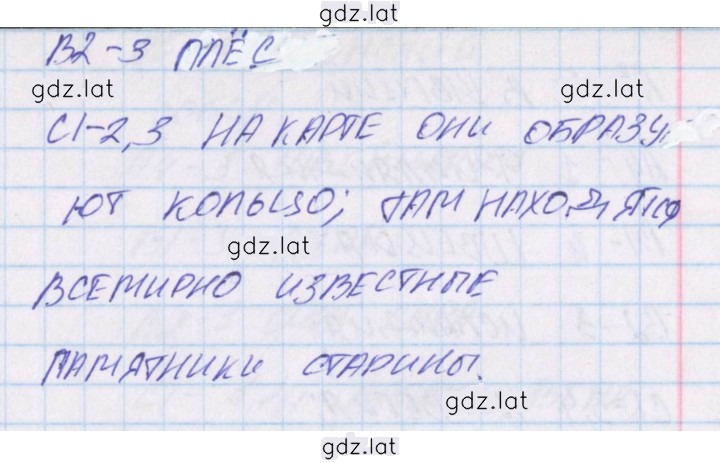 gdz.lat
В2-3 ПЛЁС
gdz.lat gdz.lat
С1-2,3 НА КАРТЕ ОНИ ОБРАЗУ
ЮТ КОЛЬЦО; ТАМ НАХОДЯТСЯ
gdz.lat
ВСЕМИРНО ИЗВЕСТНЫЕ
ПАМЯТНИКИ СТАРИНЫ.
gdz.lat
gdz.lat